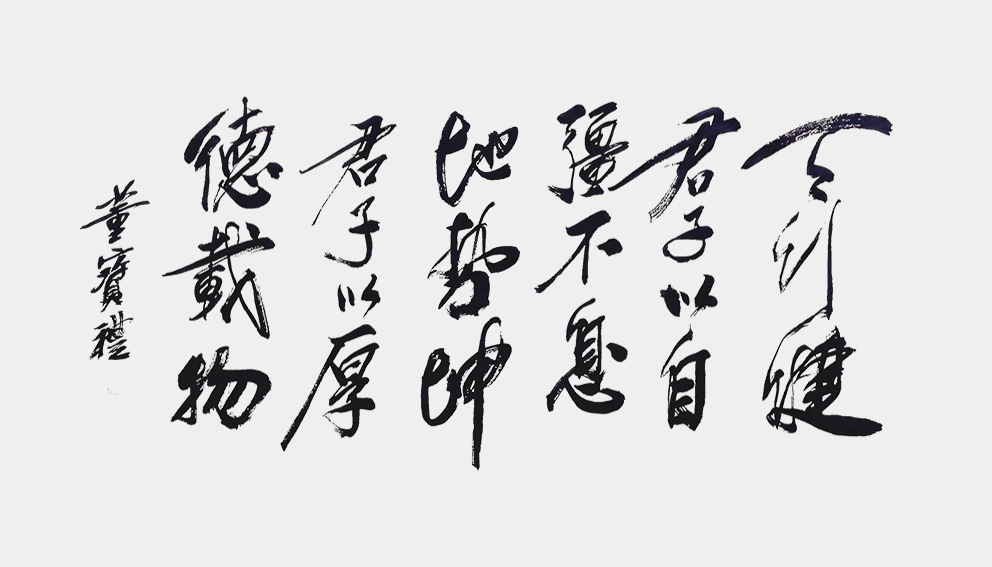 天行健
君子以自
彊不息
地勢坤
君子以厚
德載物
董寶禮